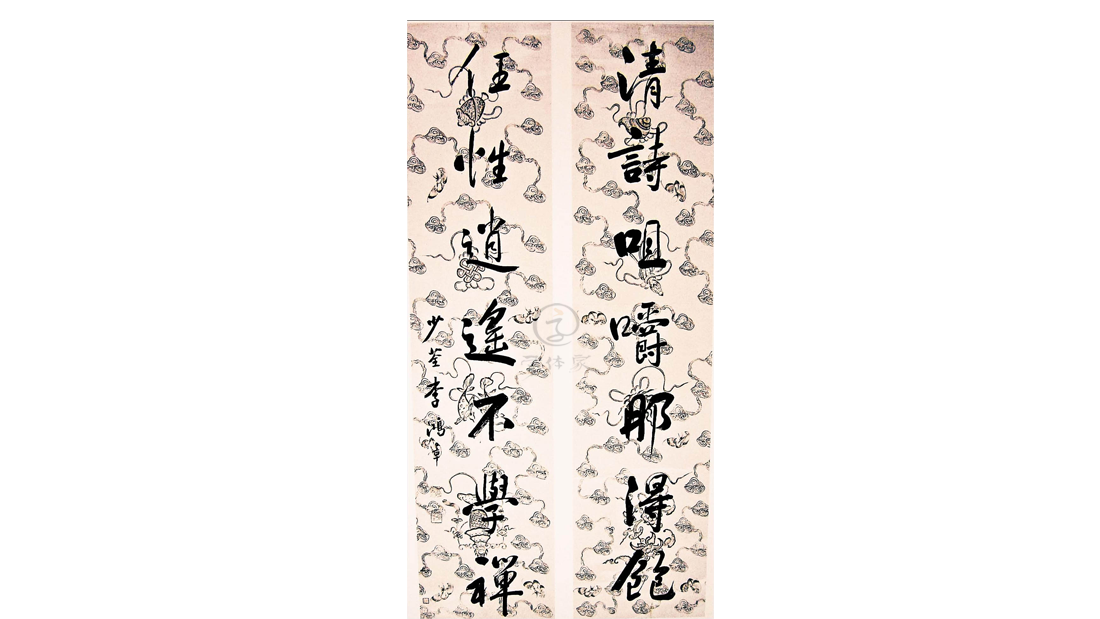 清詩咀嚼那得飽
任性逍遙不學禪
少荃李鴻章
字体家